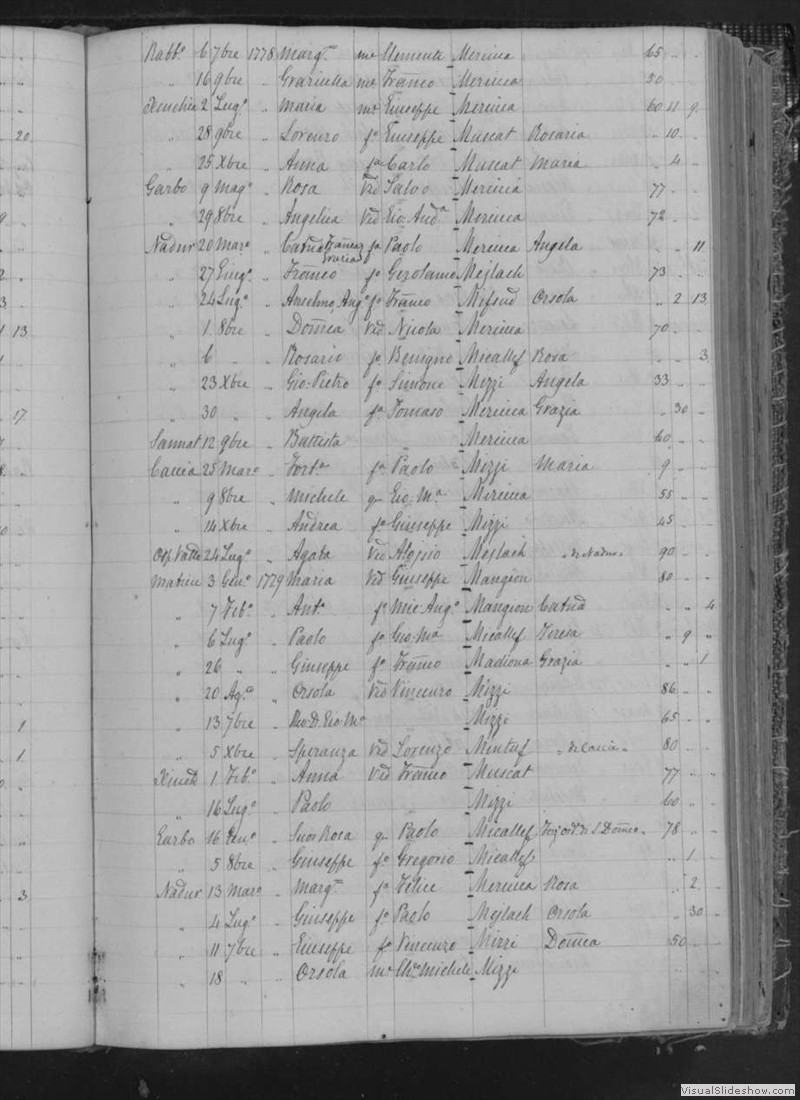 20
13
17
1
1
3
Rabbto 6 7bre 1778 Margta me Clemente Mercieca 65 " "
" 16 9bre " Graziulla me Franco Mercieca 50
Xeuchia 2 Lugo " Maria me Giuseppe Mercieca 60 11 9
" 28 9bre " Lorenzo fo Giuseppe Muscat Rosaria " 10 "
" 25 Xbre " Anna fa Carlo Muscat Maria " 4 "
Garbo 9 Mago " Rosa Ved Salvo Mercieca 77
" 29 8bre " Angelica Ved Gio Anda Mercieca 72
Nadur 20 Maro " Catna Franca Maria fa Paolo Mercieca Angela " " 11
" 27 Giugo " Franco fo Gerolamo Mejlach 73
" 24 Lugo " Anselmo, Ango fo Franco Mifsud Orsola " 2 13
" 1 8bre " Domca Ved Nicola Mercieca 70
" 6 " " Rosario fo Benigno Micallef Rosa " " 3
" 23 Xbre " Gio. Pietro fo Simone Mizzi Angela 33
" 30 " " Angela fa Tomaso Mercieca Grazia " 30 "
Sannat 12 9bre " Battista " Mercieca 60
Caccia 25 Maro " Forta fa Paolo Mizzi Maria 9
" 9 8bre " Michele q Gio Ma Mercieca 55
" 14 Xbre " Andrea fo Giuseppe Mizzi 45
24 Lugo " Agata Ved Aloisio Mejlach "di Nadur" 90
3 Geno 1779 Maria Ved Giuseppe Mangion 80
" 7 Febo " Anto fo Mic. Ango Mangion Catna " " 4
" 6 Lugo " Paolo fo Gio. Ma Micallef Teresa " 9 "
" 26 " " Giuseppe fo Franco Madiona Grazia " " 1
" 20 Ago " Orsola Ved Vincenzo Mizzi 86
" 13 7bre " Rdo D. Gio Ma Mizzi 65
" 5 Xbre " Speranza Ved Lorenzo Mintuf "di Caccia" 80
Xeuch 1 Febo " Anna Ved Franco Muscat 77
" 16 Lugo " Paolo Mizzi 60
Garbo 16 Geno " Suor Rosa q Paolo Micallef di S. Domco 78
" 5 8bre " Giuseppe fo Gregorio Micallef " 1 "
Nadur 13 Maro " Margta fa Felice Mercieca Rosa " 2
" 4 Lugo " Giuseppe fo Paolo Mejlach Orsola " 30 "
" 11 7bre " Giuseppe fo Vincenzo Mizzi Domca 50
" 18 " " Orsola me Michele Mizzi
VisualSlideshow.com